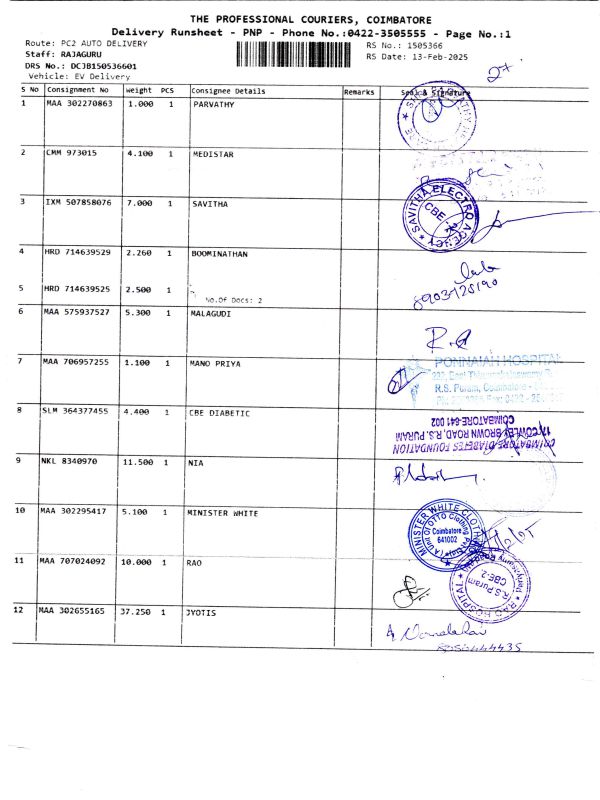 THE PROFESSIONAL COURIERS, COIMBATORE
Delivery Runsheet - PNP - Phone No.:0422-3505555 - Page No.:1
Route: PC2 AUTO DELIVERY
RS No.: 1505366
Staff: RAJAGURU
RS Date: 13-Feb-2025
DRS No.: DCJB150536601
Vehicle: EV Delivery
S No Consignment No Weight PCS Consignee Details Remarks Seal & Signature
1 MAA 302270863 1.000 1 PARVATHY
2 CMM 973015 4.100 1 MEDISTAR
3 IXM 507858076 7.000 1 SAVITHA
SAVITHA ELECTRO AGENCY
CBE
4 HRD 714639529 2.260 1 BOOMINATHAN
5 HRD 714639525 2.500 1
No.Of Docs: 2
6 MAA 575937527 5.300 1 MALAGUDI
7 MAA 706957255 1.100 1 MANO PRIYA
PONNAIAH HOSPITAL
R.S. Puram, Coimbatore -
8 SLM 364377455 4.400 1 CBE DIABETIC
COIMBATORE DIABETES FOUNDATION
COWLEY BROWN ROAD, R.S. PURAM
COIMBATORE-641 002
9 NKL 8340970 11.500 1 NIA
10 MAA 302295417 5.100 1 MINISTER WHITE
MINISTER WHITE CLOTHING
Coimbatore
641002
11 MAA 707024092 10.000 1 RAO
RAO HOSPITAL
R.S. Puram
CBE-2.
12 MAA 302655165 37.250 1 JYOTIS